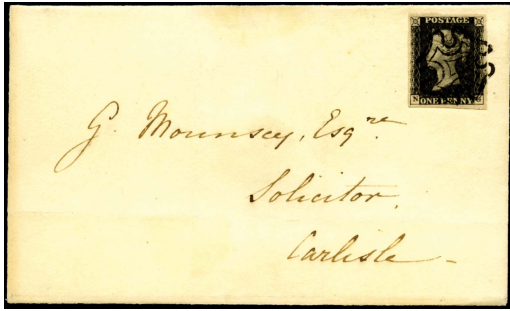 POSTAGE
ONE PENNY
G. Mounsey, Esqre.
Solicitor,
Carlisle